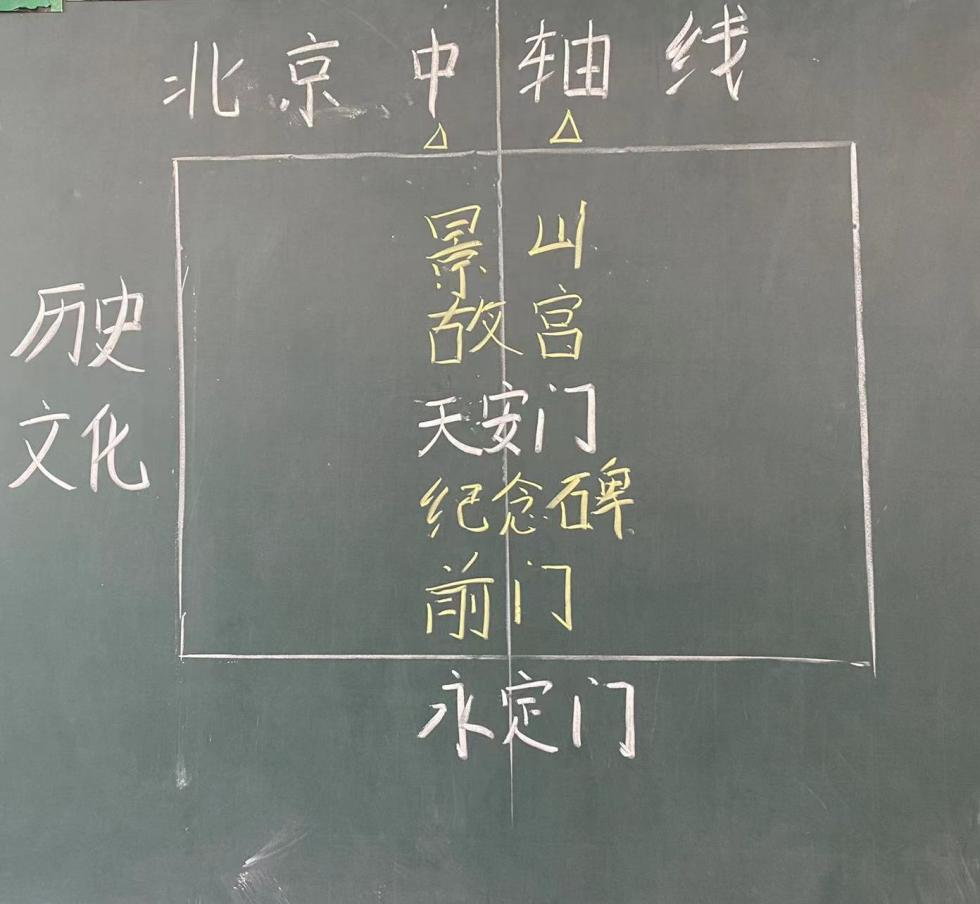 北京中轴线
景山
故宫
历史
文化
天安门
纪念碑
前门
永定门